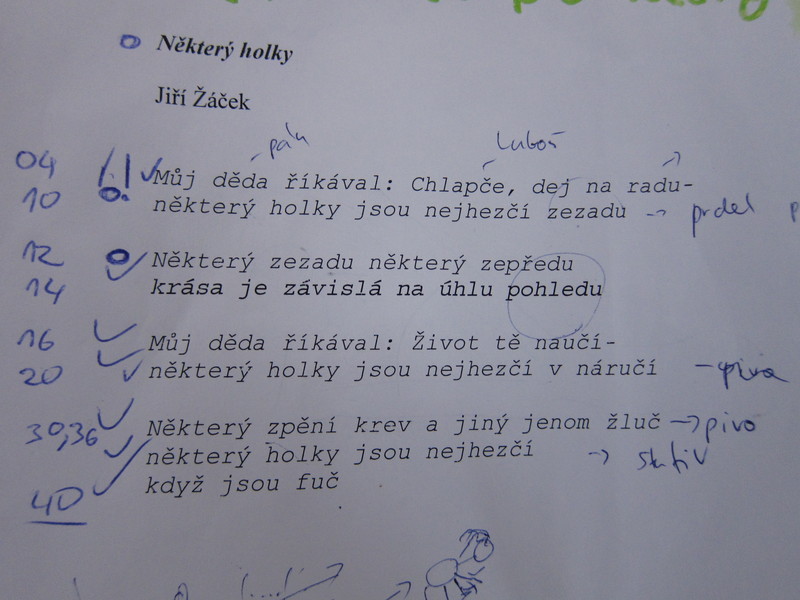 Některý holky
Jiří Žáček
Luboš
04 Můj děda říkával: Chlapče, dej na radu-
10 některý holky jsou nejhezčí zezadu → prdel
12 Některý zezadu některý zepředu
14 krása je závislá na úhlu pohledu
16 Můj děda říkával: Život tě naučí-
20 některý holky jsou nejhezčí v náručí
30,36 Některý zpění krev a jiný jenom žluč → pivo
některý holky jsou nejhezčí → stativ
40 když jsou fuč